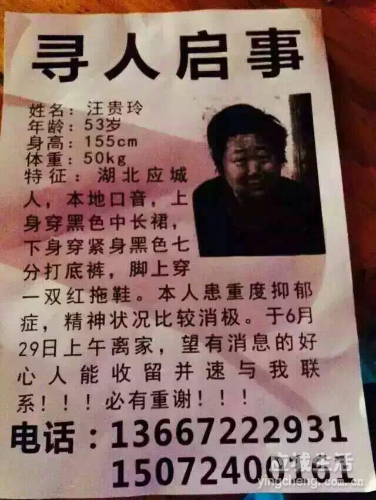 寻人启事
姓名：汪贵玲
年龄：53岁
身高：155cm
体重：50kg
特征：湖北应城
人，本地口音，上
身穿黑色中长裙，
下身穿紧身黑色七
分打底裤，脚上穿
一双红拖鞋。本人患重度抑郁
症，精神状况比较消极。于6月
29日上午离家，望有消息的好
心人能收留并速与我联
系！！！必有重谢！！！
电话：13667222931
15072400101
应城生活
yingcheng.com